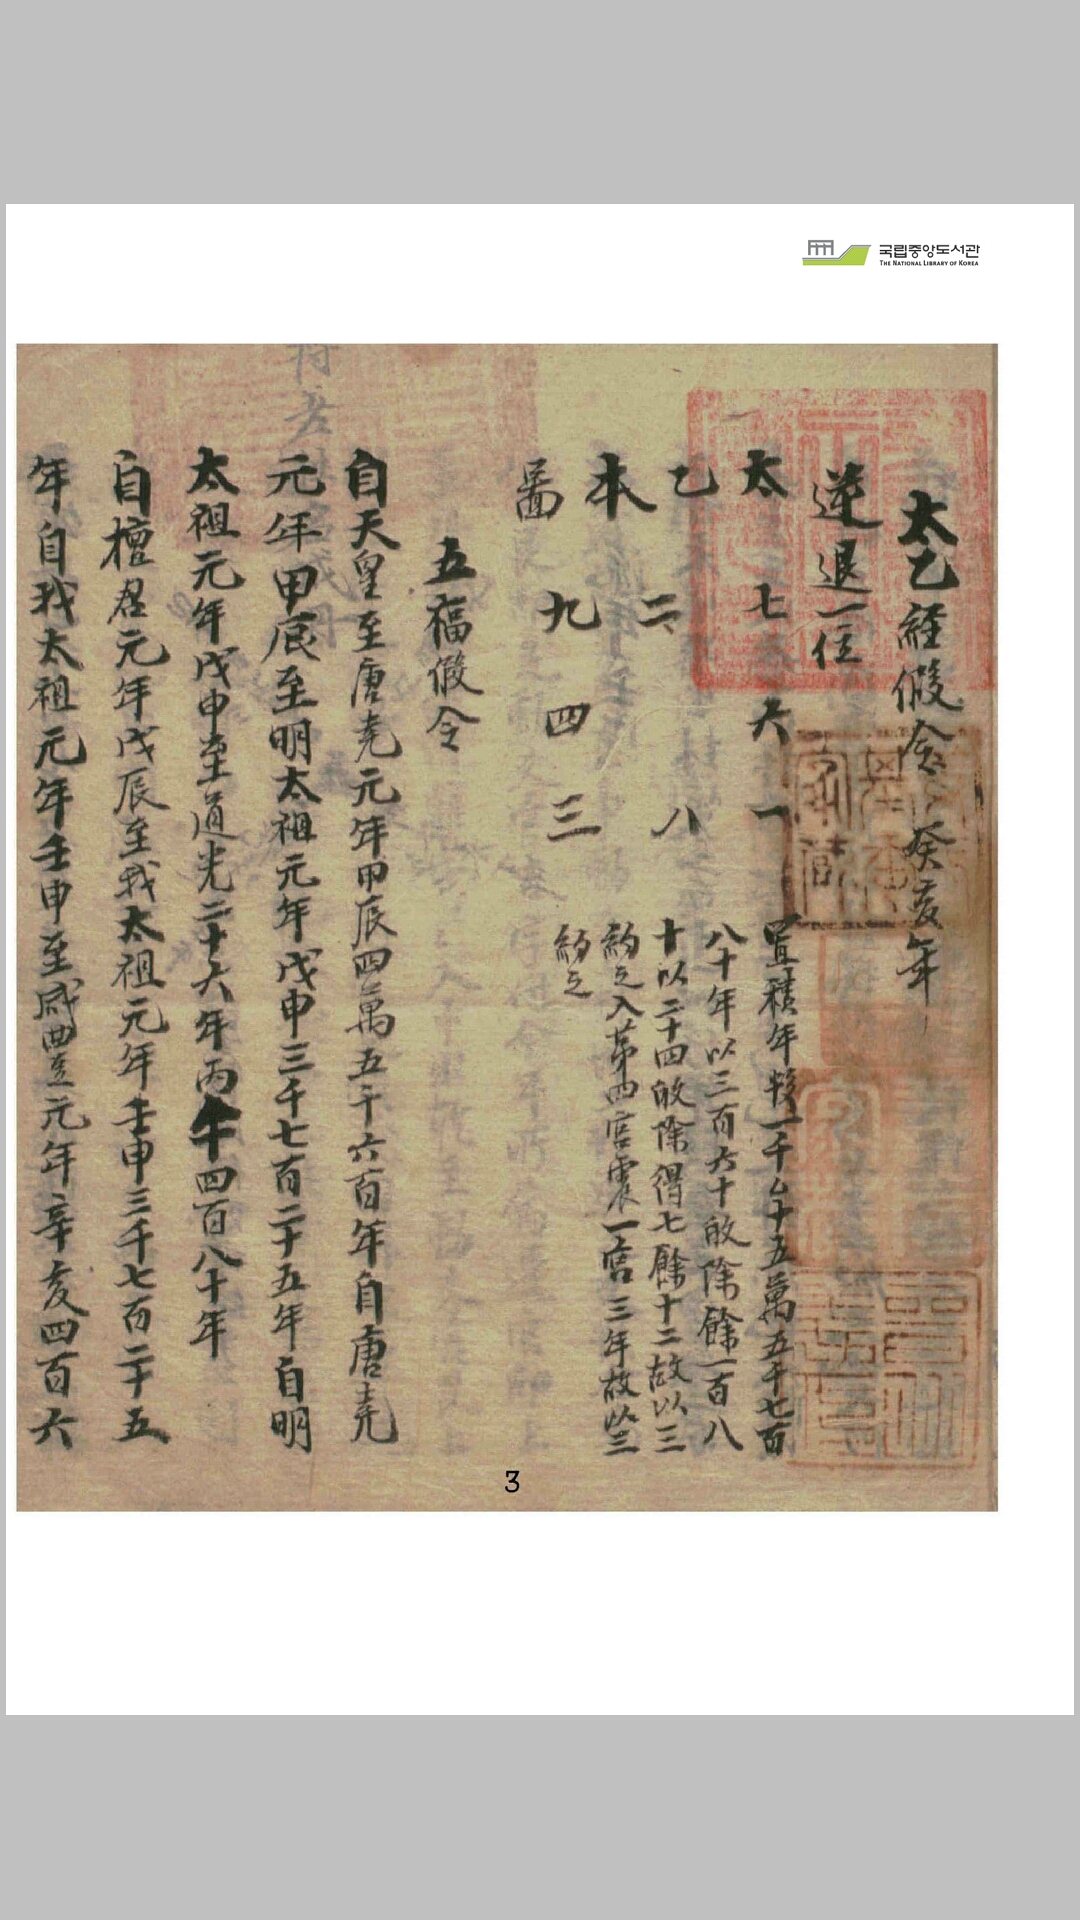 국립중앙도서관
THE NATIONAL LIBRARY OF KOREA
太乙經假令 癸亥年
逆退一位
太 七 六 一
乙 二 八
本
啚 九 四 三
置積年 一千 五萬五千七百
八十年以三百六十 除餘一百八
十以二十四 除得七餘十二故以三
約之入第四宮震一宮三年故以三
約之
五福假令
自天皇至唐堯元年甲辰四萬五千六百年自唐堯
元年甲辰至明太祖元年戊申三千七百二十五年自明
太祖元年戊申至道光二十六年丙午四百八十年
自檀君元年戊辰至我太祖元年壬申三千七百二十五
年自我太祖元年壬申至咸豊元年辛亥四百六
3